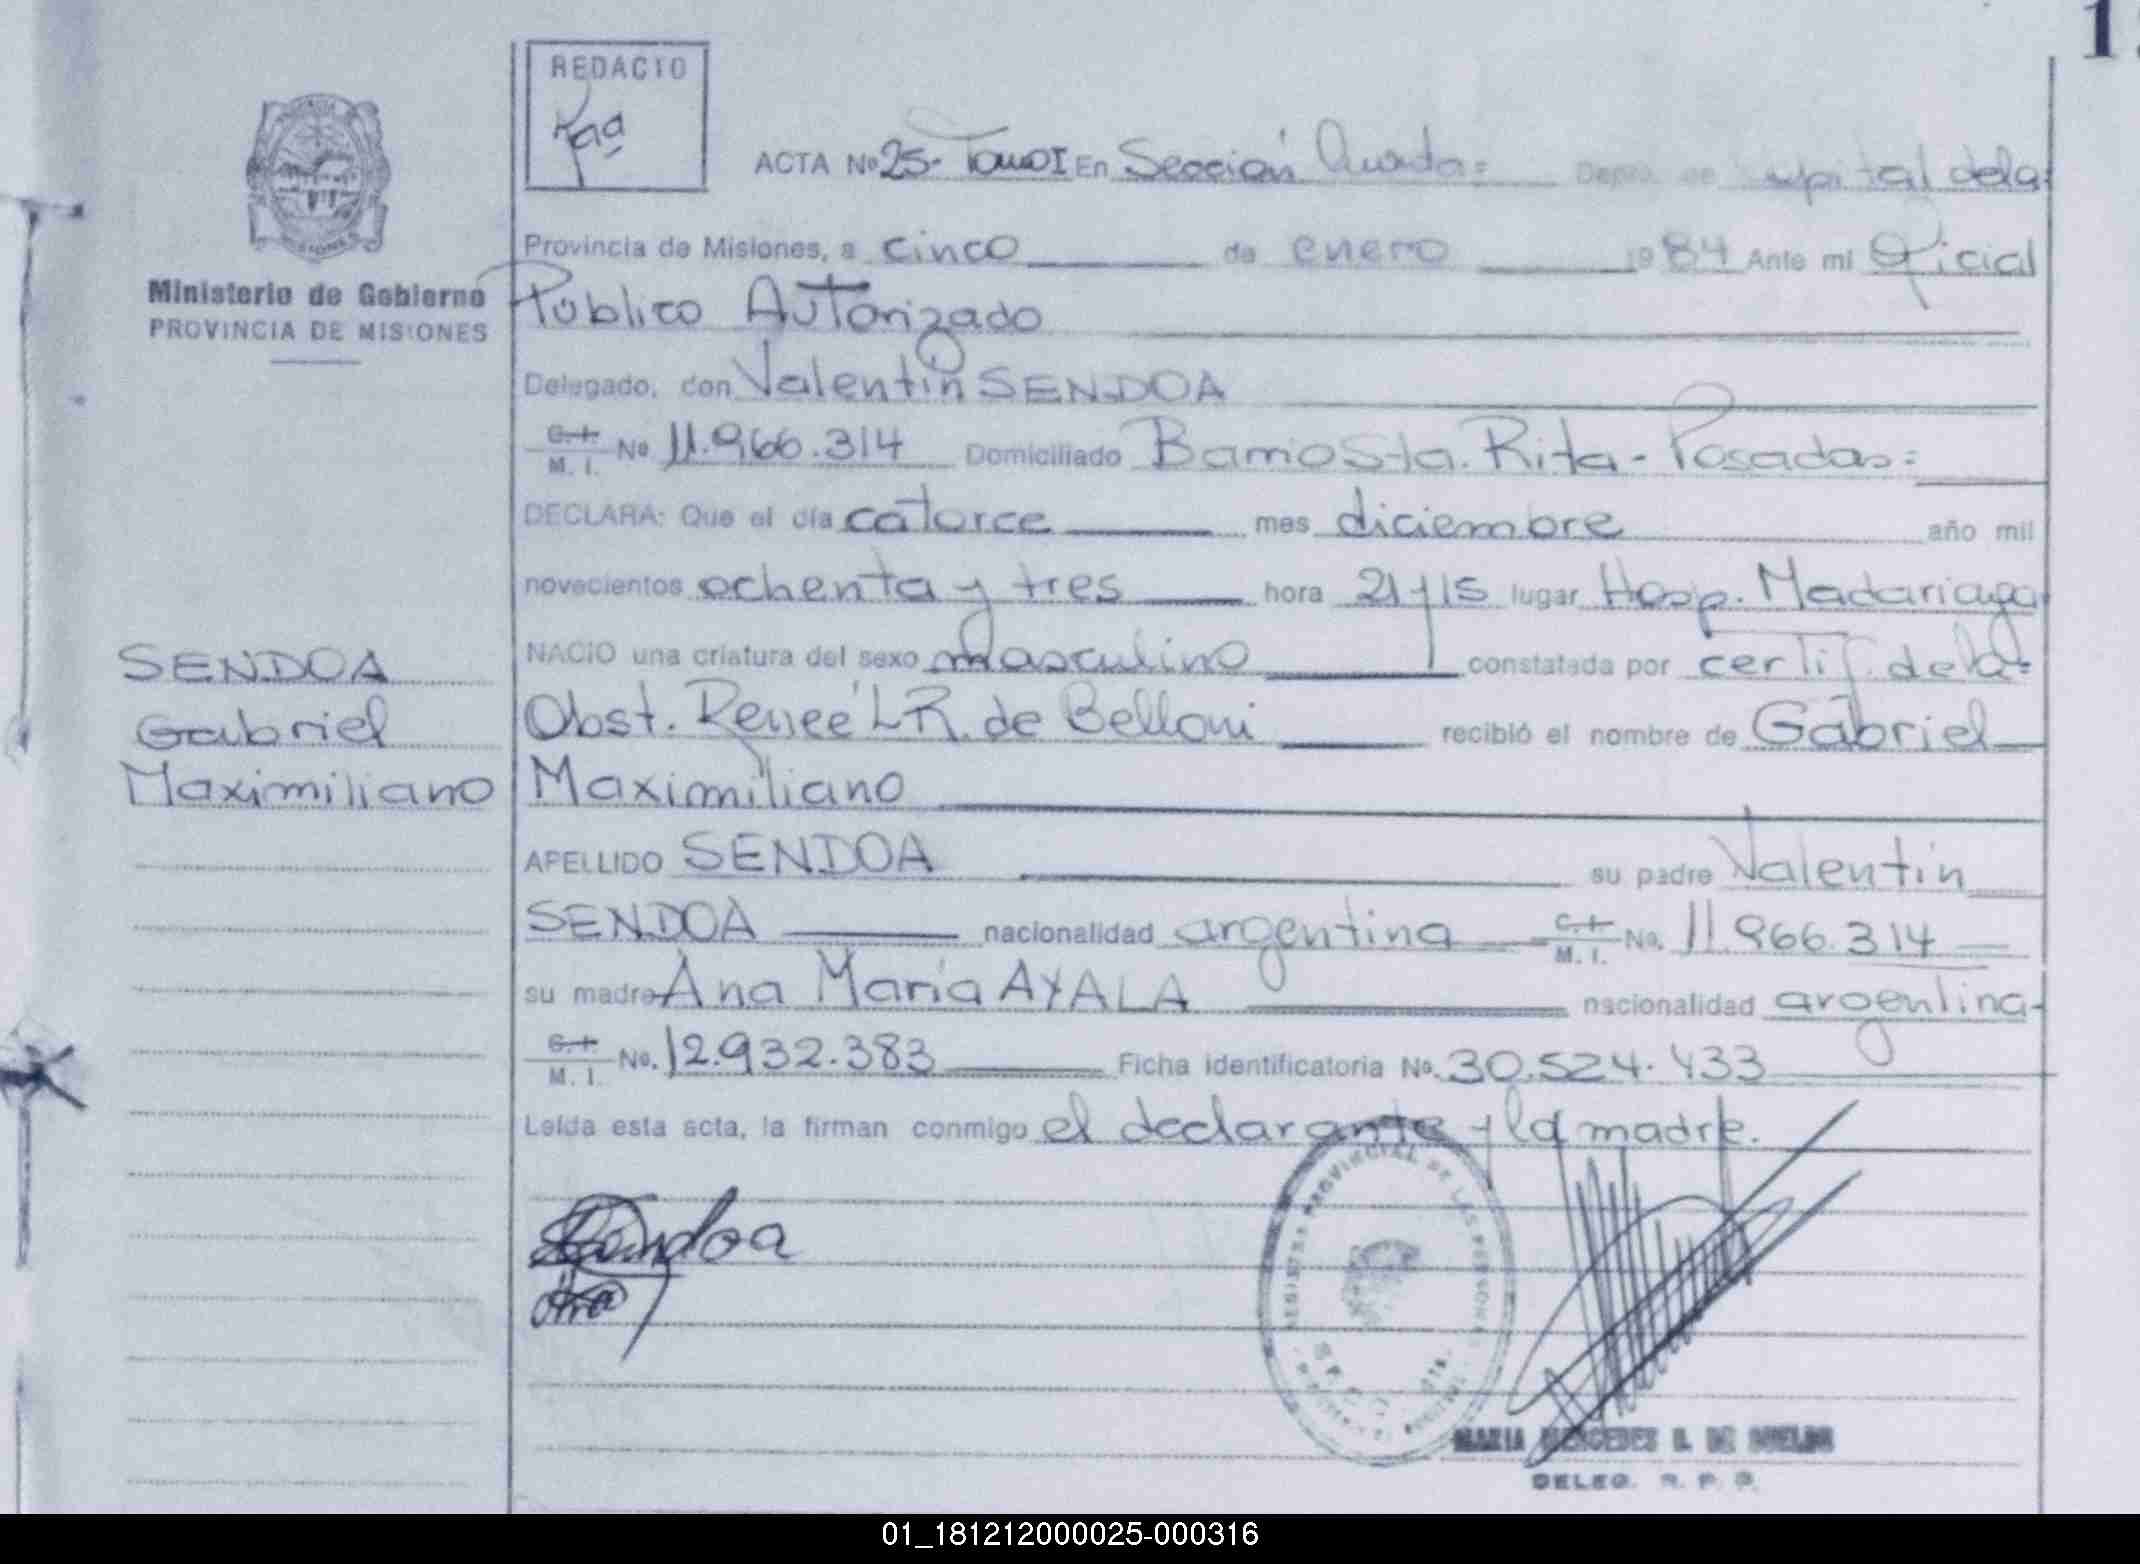 REDACTO
ACTA Nº 25- Tomo I En Sección Cuarta= Depto. de Capital de la
Ministerio de Gobierno
PROVINCIA DE MISIONES
Provincia de Misiones, a cinco de enero 1984 Ante mi Oficial
Público Autorizado
Delegado, don Valentín SENDOA
C. I. M. I. Nº 11.966.314 Domiciliado Barrio Sta. Rita - Posadas=
DECLARA: Que el día catorce mes diciembre año mil
novecientos ochenta y tres hora 21 y 15 lugar Hosp. Madariaga
NACIO una criatura del sexo masculino constatada por certif. de la=
Obst. Reneé L R. de Belloni recibió el nombre de Gabriel
Maximiliano
APELLIDO SENDOA su padre Valentín
SENDOA nacionalidad argentina C. I. M. I. No. 11.966.314
su madre Ana María AYALA nacionalidad argentina-
C. I. M. I. No. 12.932.383 Ficha identificatoria Nº. 30.524.433
Leída esta acta, la firman conmigo el declarante y la madre.
SENDOA
Gabriel
Maximiliano
Sendoa
REGISTRO PROVINCIAL DE LAS PERSONAS
MARIA MERCEDES
DELEG. R. P. P.
01_181212000025-000316